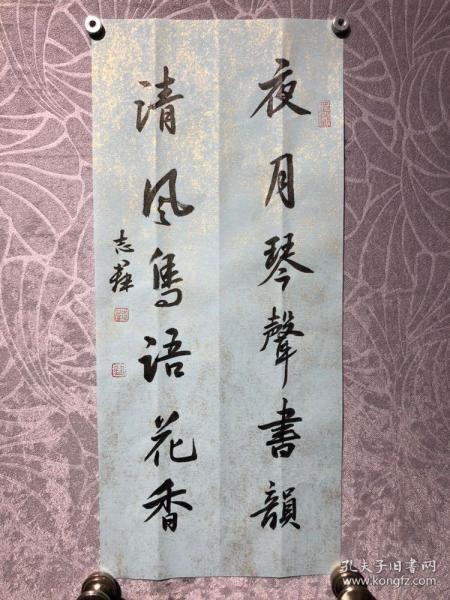 夜月琴聲書韻
清風鳥语花香
志
孔夫子旧书网
www.kongfz.com